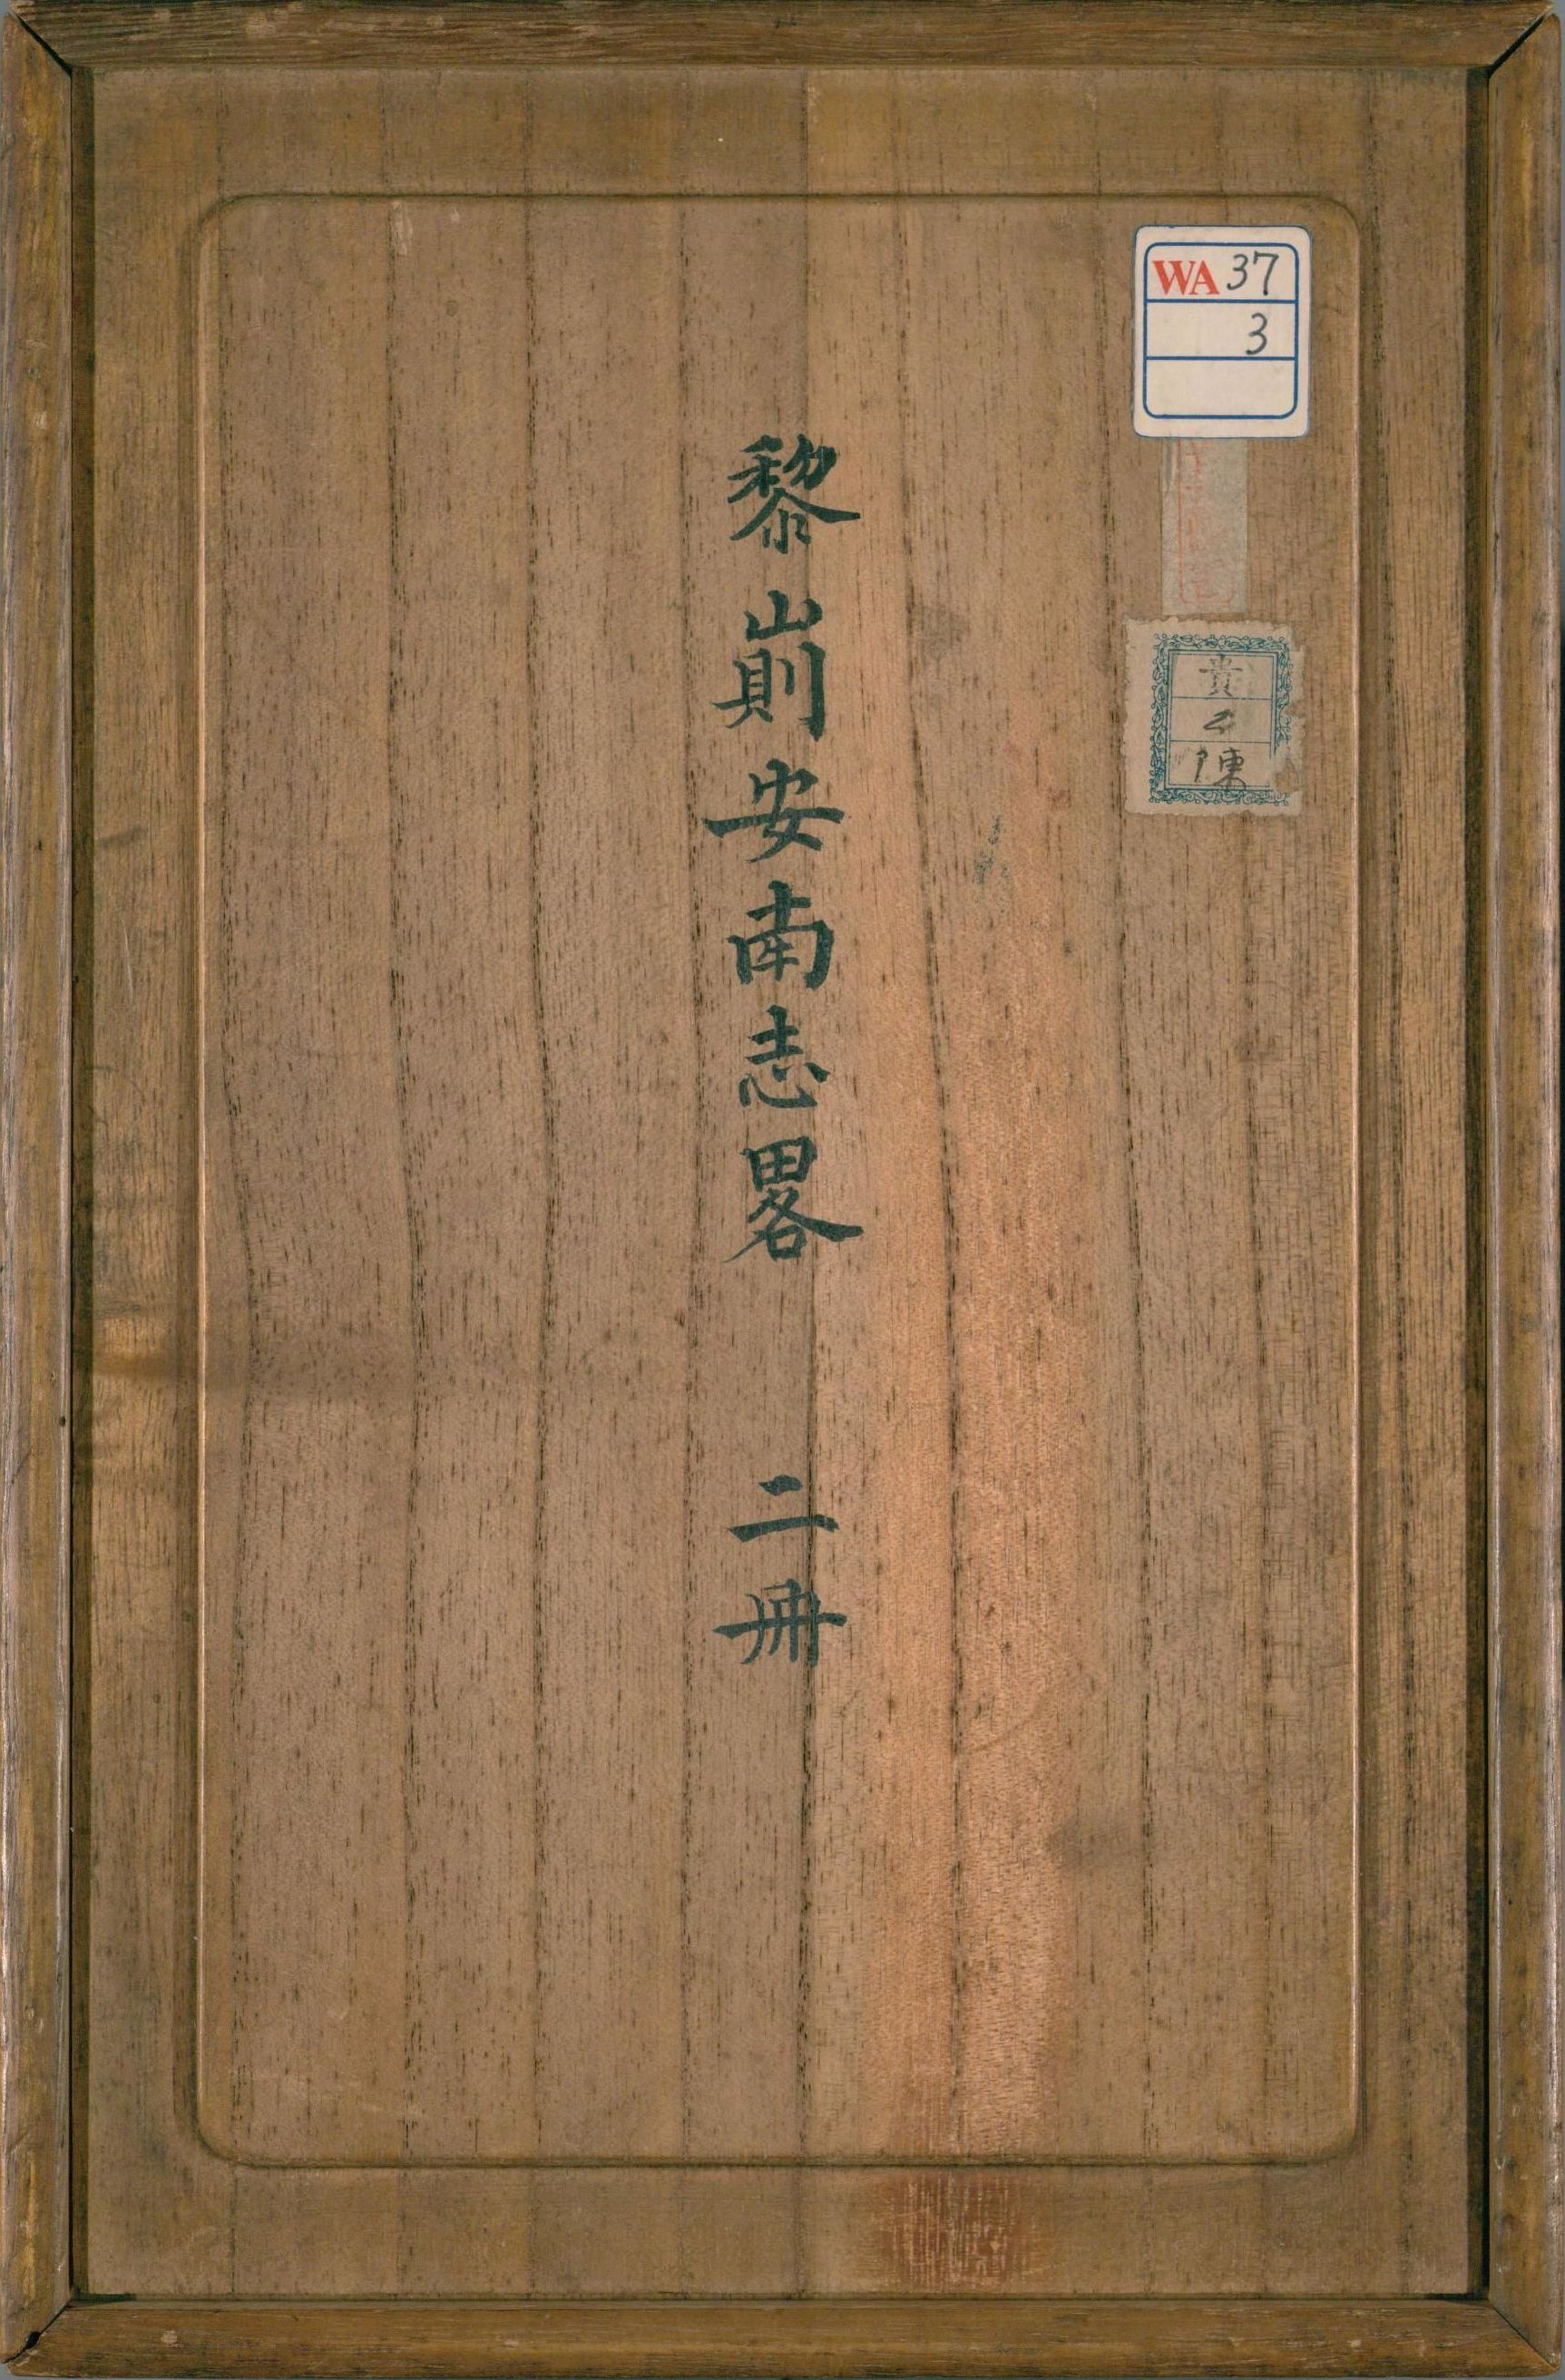 WA 37
3
貴
乙
陳
黎崱安南志畧 二冊